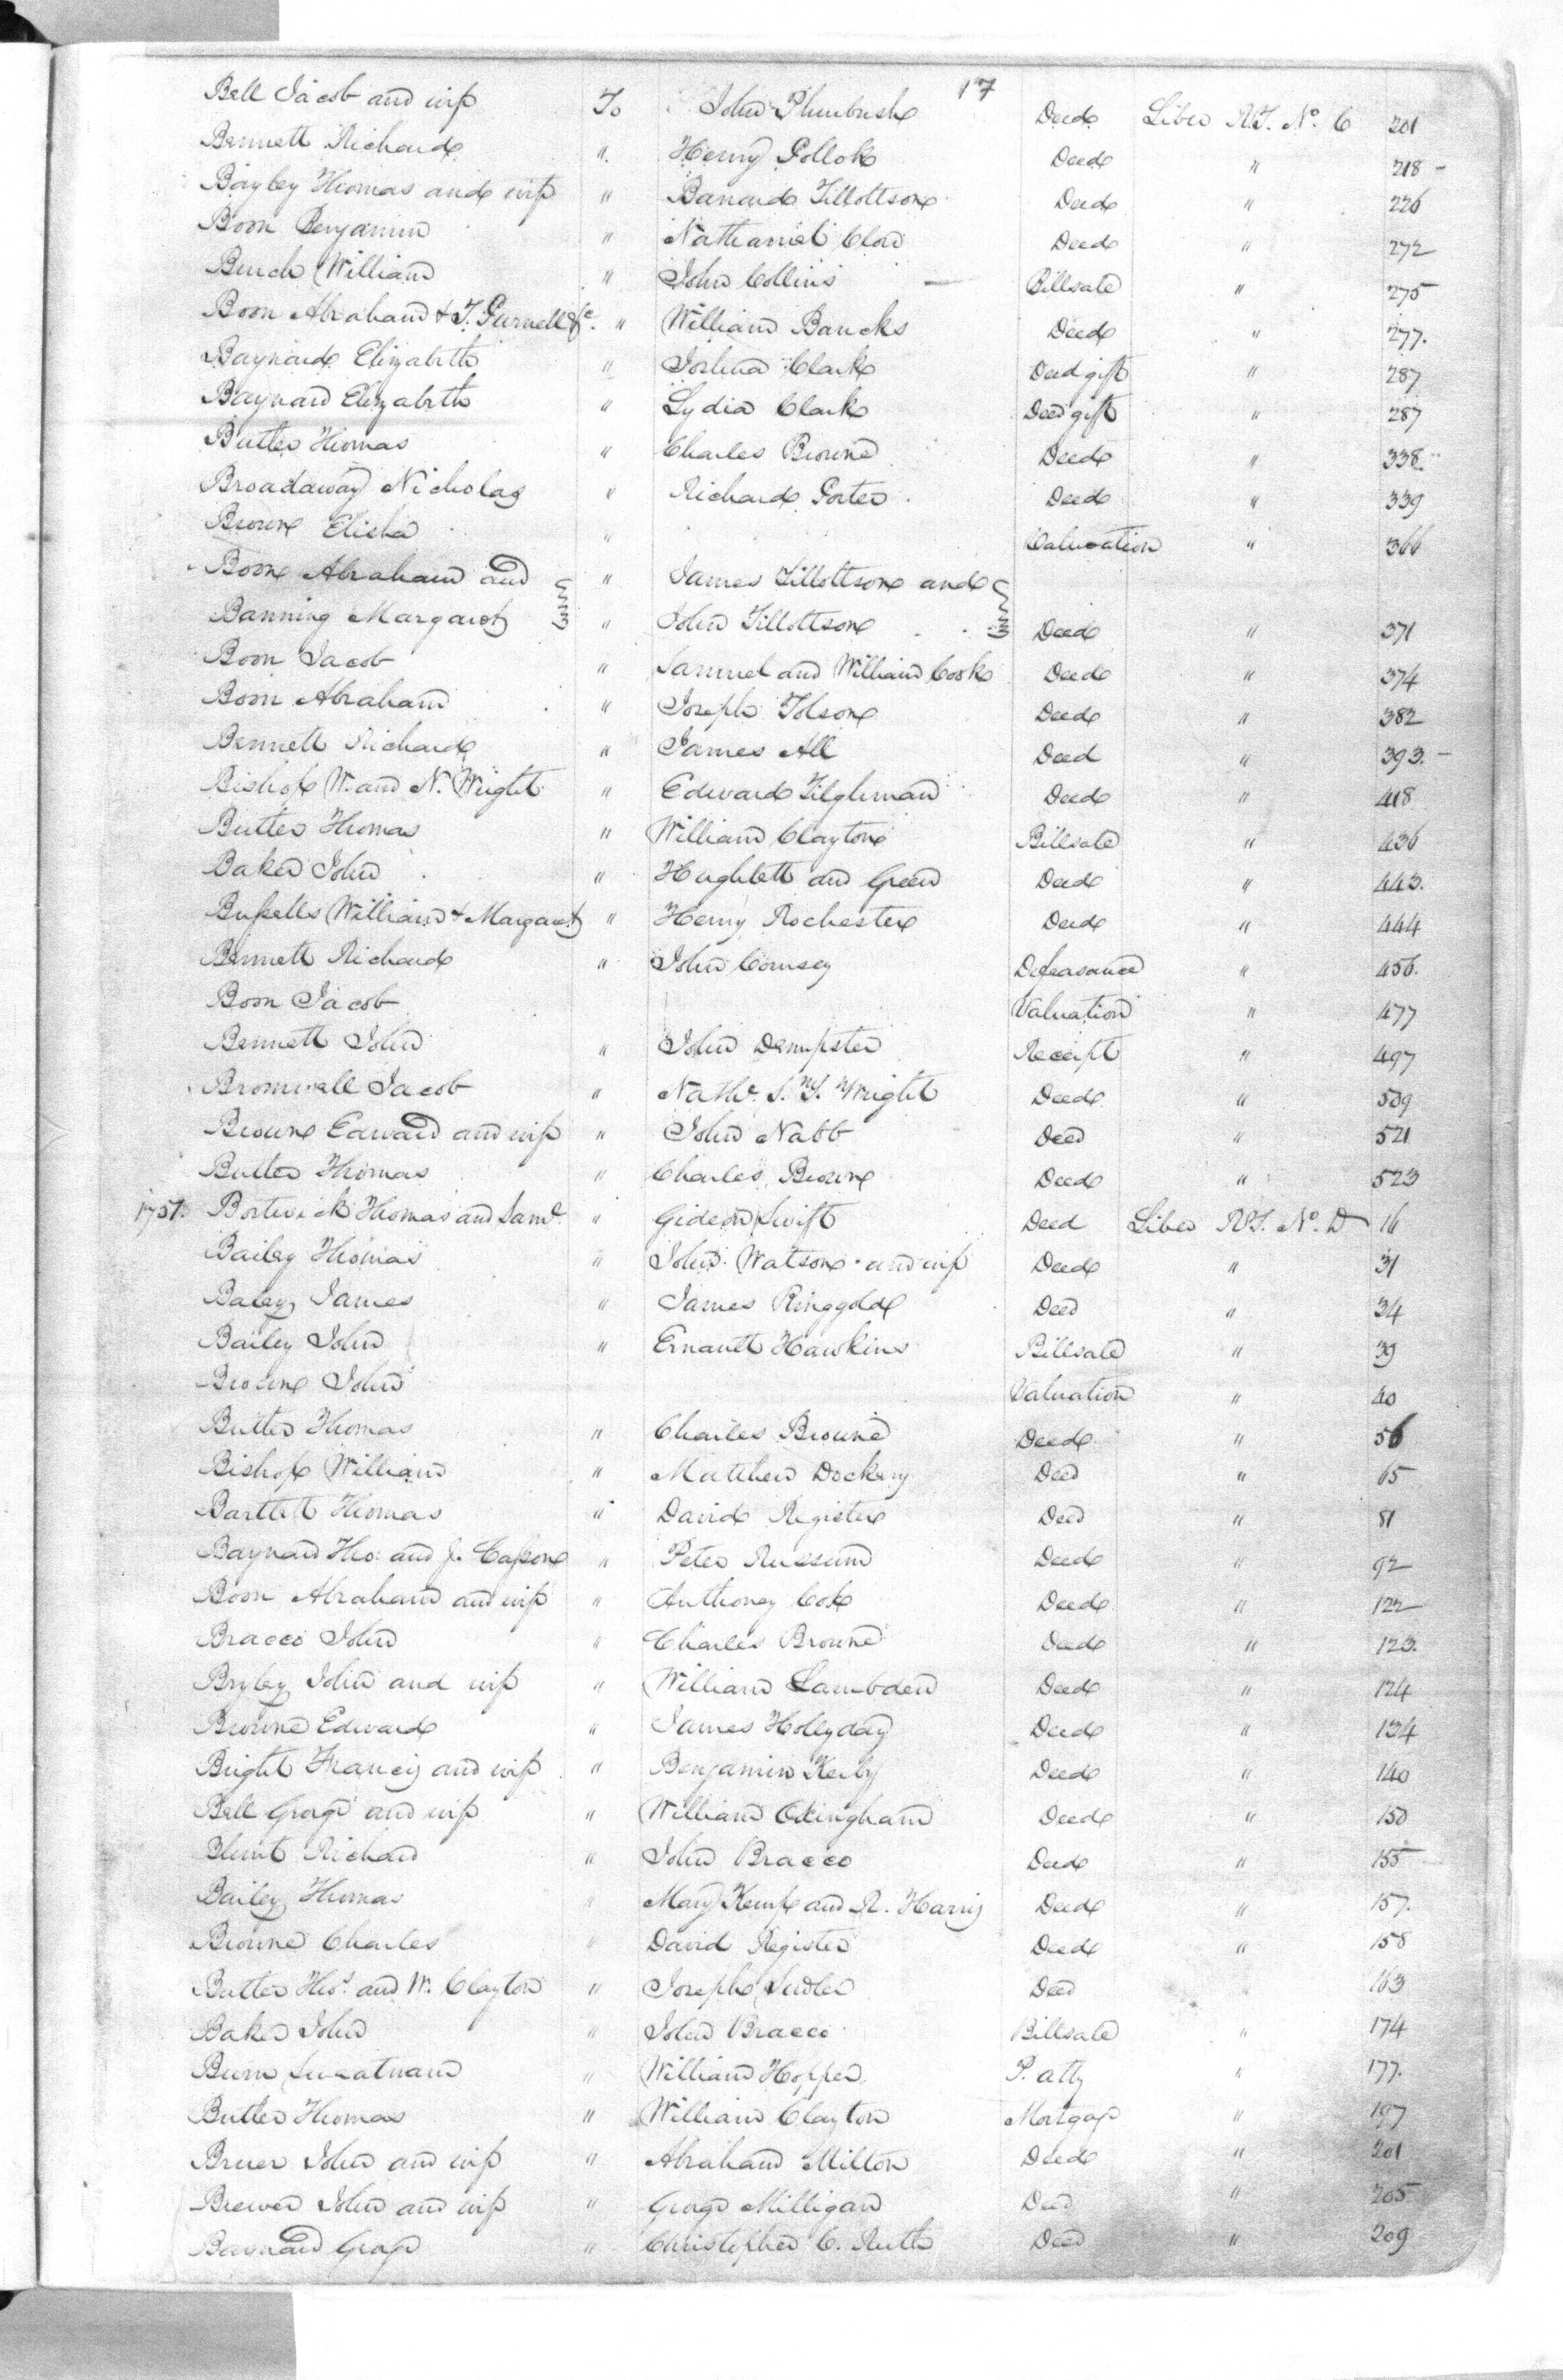 17
Bell Jacob and wife To John Plumbush Deed Liber R.T. No. C 201
Bennett Richard " Henry Pollok Deed " 218 -
Bayley Thomas and wife " Banard Tillottson Deed " 226
Boon Benjamin " Nathaniel Clow Deed " 272
Burch William " John Collins — Billsale " 275
Boon Abraham & T. Purnell &c. " William Bancks Deed " 277.
Baynard Elizabeth " Joshua Clark Deed gift " 287
Baynard Elizabeth " Lydia Clark Deed gift " 287
Butler Thomas " Charles Browne Deed " 338.
Broadaway Nicholas " Richard Porter Deed " 339
Browne Elisha " Valuation " 366
Boon Abraham and " James Tillottson and
Banning Margaret " John Tillottson Deed " 371
Boon Jacob " Samuel and William Cook Deed " 374
Boon Abraham " Joseph Tolson Deed " 382
Bennett Richard " James All Deed " 393. -
Bishop W. and N. Wright " Edward Tilghman Deed " 418
Butler Thomas " William Clayton Billsale " 436
Baker John " Hughlett and Green Deed " 443.
Bussells William & Margaret " Henry Rochester Deed " 444
Bennett Richard " John Comsey Defeasance " 456.
Boon Jacob Valuation " 477
Bennett John " John Dempster Receipt " 497
Bromwell Jacob " Nathl. S. T. Wright Deed " 509
Browne Edward and wife " John Nabb Deed " 521
Butler Thomas " Charles Browne Deed " 523
1751. Bostwick Thomas and Saml. " Gideon Swift Deed Liber R.T. No. D 16
Bailey Thomas " John Watson and wife Deed " 31
Baley James " James Ringgold Deed " 34
Bailey John " Ernault Hawkins Billsale " 39
Browne John Valuation " 40
Butler Thomas " Charles Browne Deed " 56
Bishop William " Matthew Dockery Deed " 65
Bartlet Thomas " David Register Deed " 81
Baynard Tho: and J. Casson " Peter Russum Deed " 92
Boon Abraham and wife " Anthoney Cox Deed " 122
Bracco John " Charles Browne Deed " 123.
Bryley John and wife " William Lambden Deed " 124
Browne Edward " James Holleyday Deed " 134
Bright Francis and wife " Benjamin Kerby Deed " 140
Bell George and wife " William Elingham Deed " 150
Blunt Richard " John Bracco Deed " 155
Bailey Thomas " Mary Kemp and R. Harris Deed " 157.
Browne Charles " David Register Deed " 158
Butler Thos. and W. Clayton " Joseph Sudler Deed " 163
Baker John " John Bracco Billsale " 174
Burn " William Hopper P. atty " 177.
Butler Thomas " William Clayton Mortgage " 197
Bruer John and wife " Abraham Milton Deed " 201
Brewer John and wife " George Milligan Deed " 205
Baynard George " Christopher C. Ruth Deed " 209